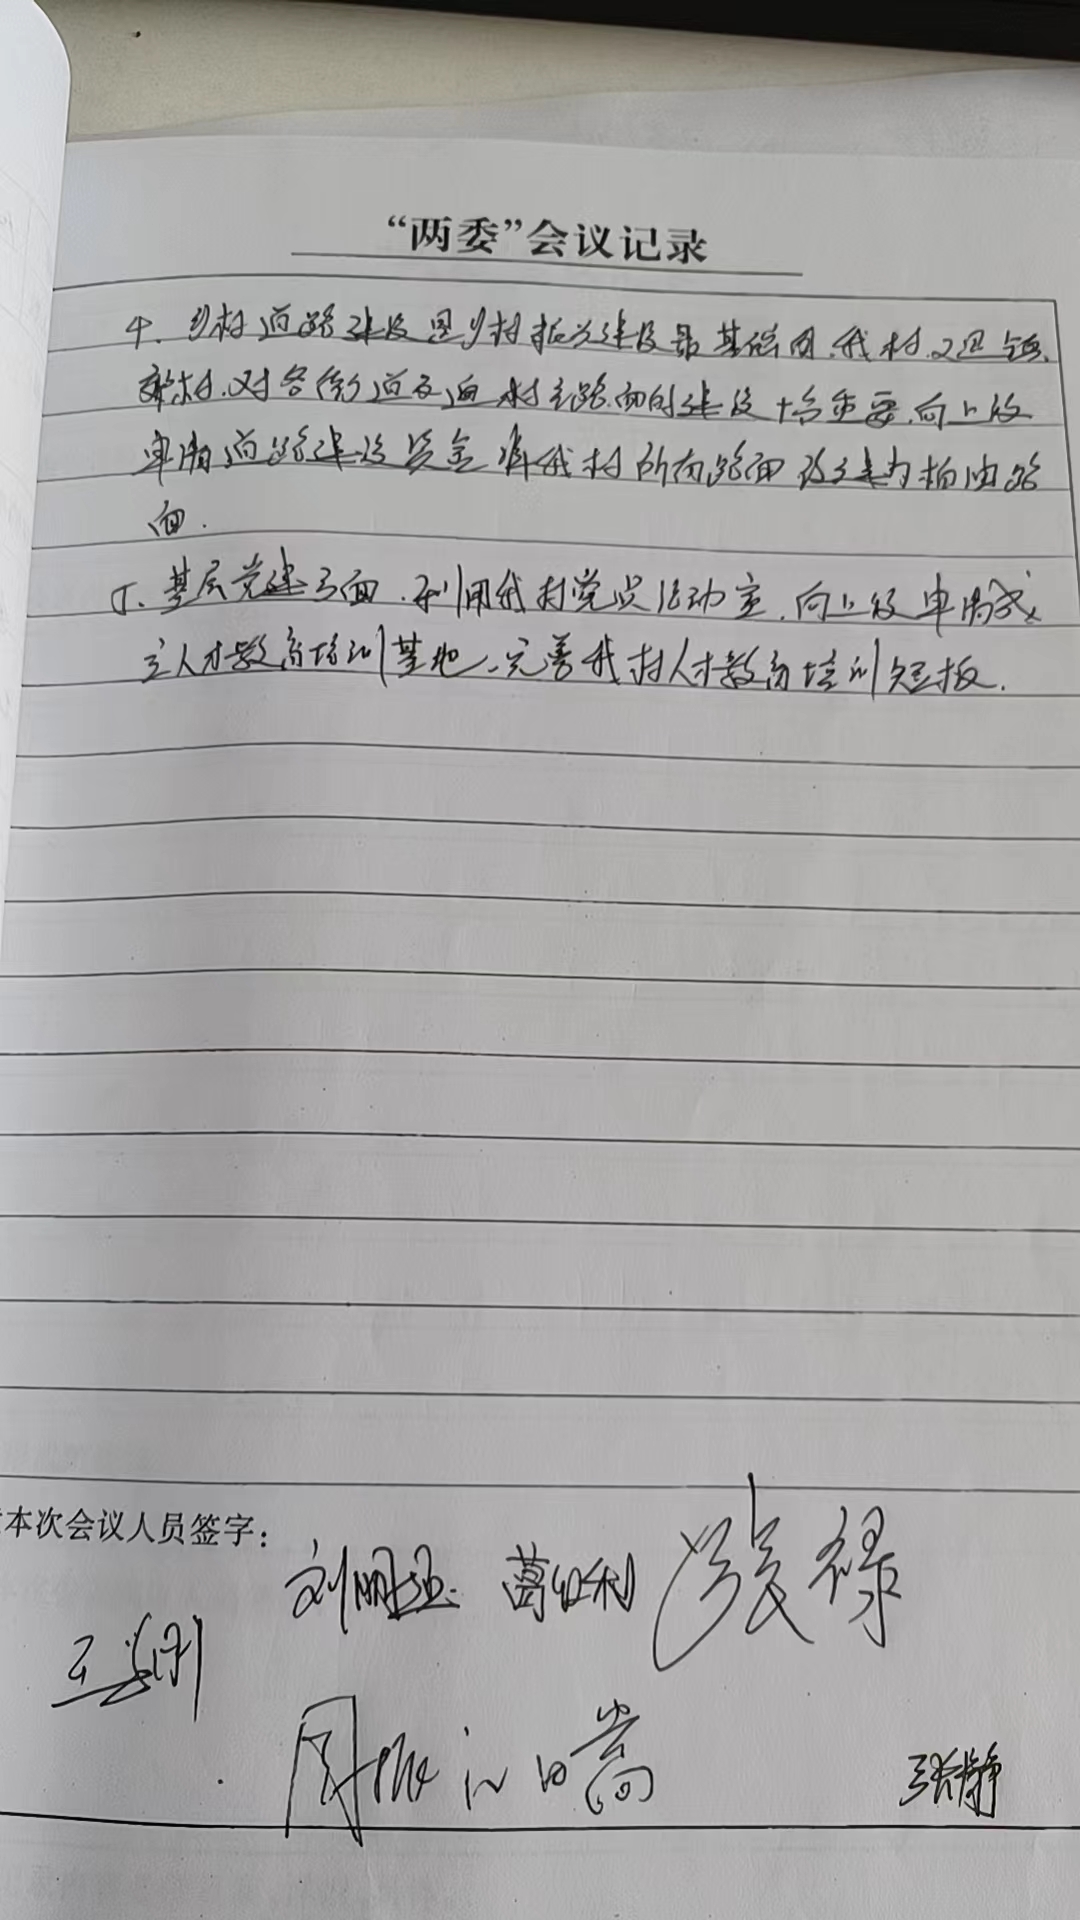 “两委”会议记录
4、乡村道路建设是乡村振兴建设最基础的,我村又是镇
郊村,对各街道及通村主路面的建设十分重要,向上级
申请道路建设资金将我村所有路面改建为柏油路
面.
5、基层党建方面,利用我村党员活动室,向上级申请成
立人才教育培训基地,完善我村人才教育培训短板.
本次会议人员签字:
刘 葛红利 张禄
王 刚
周振江 张静